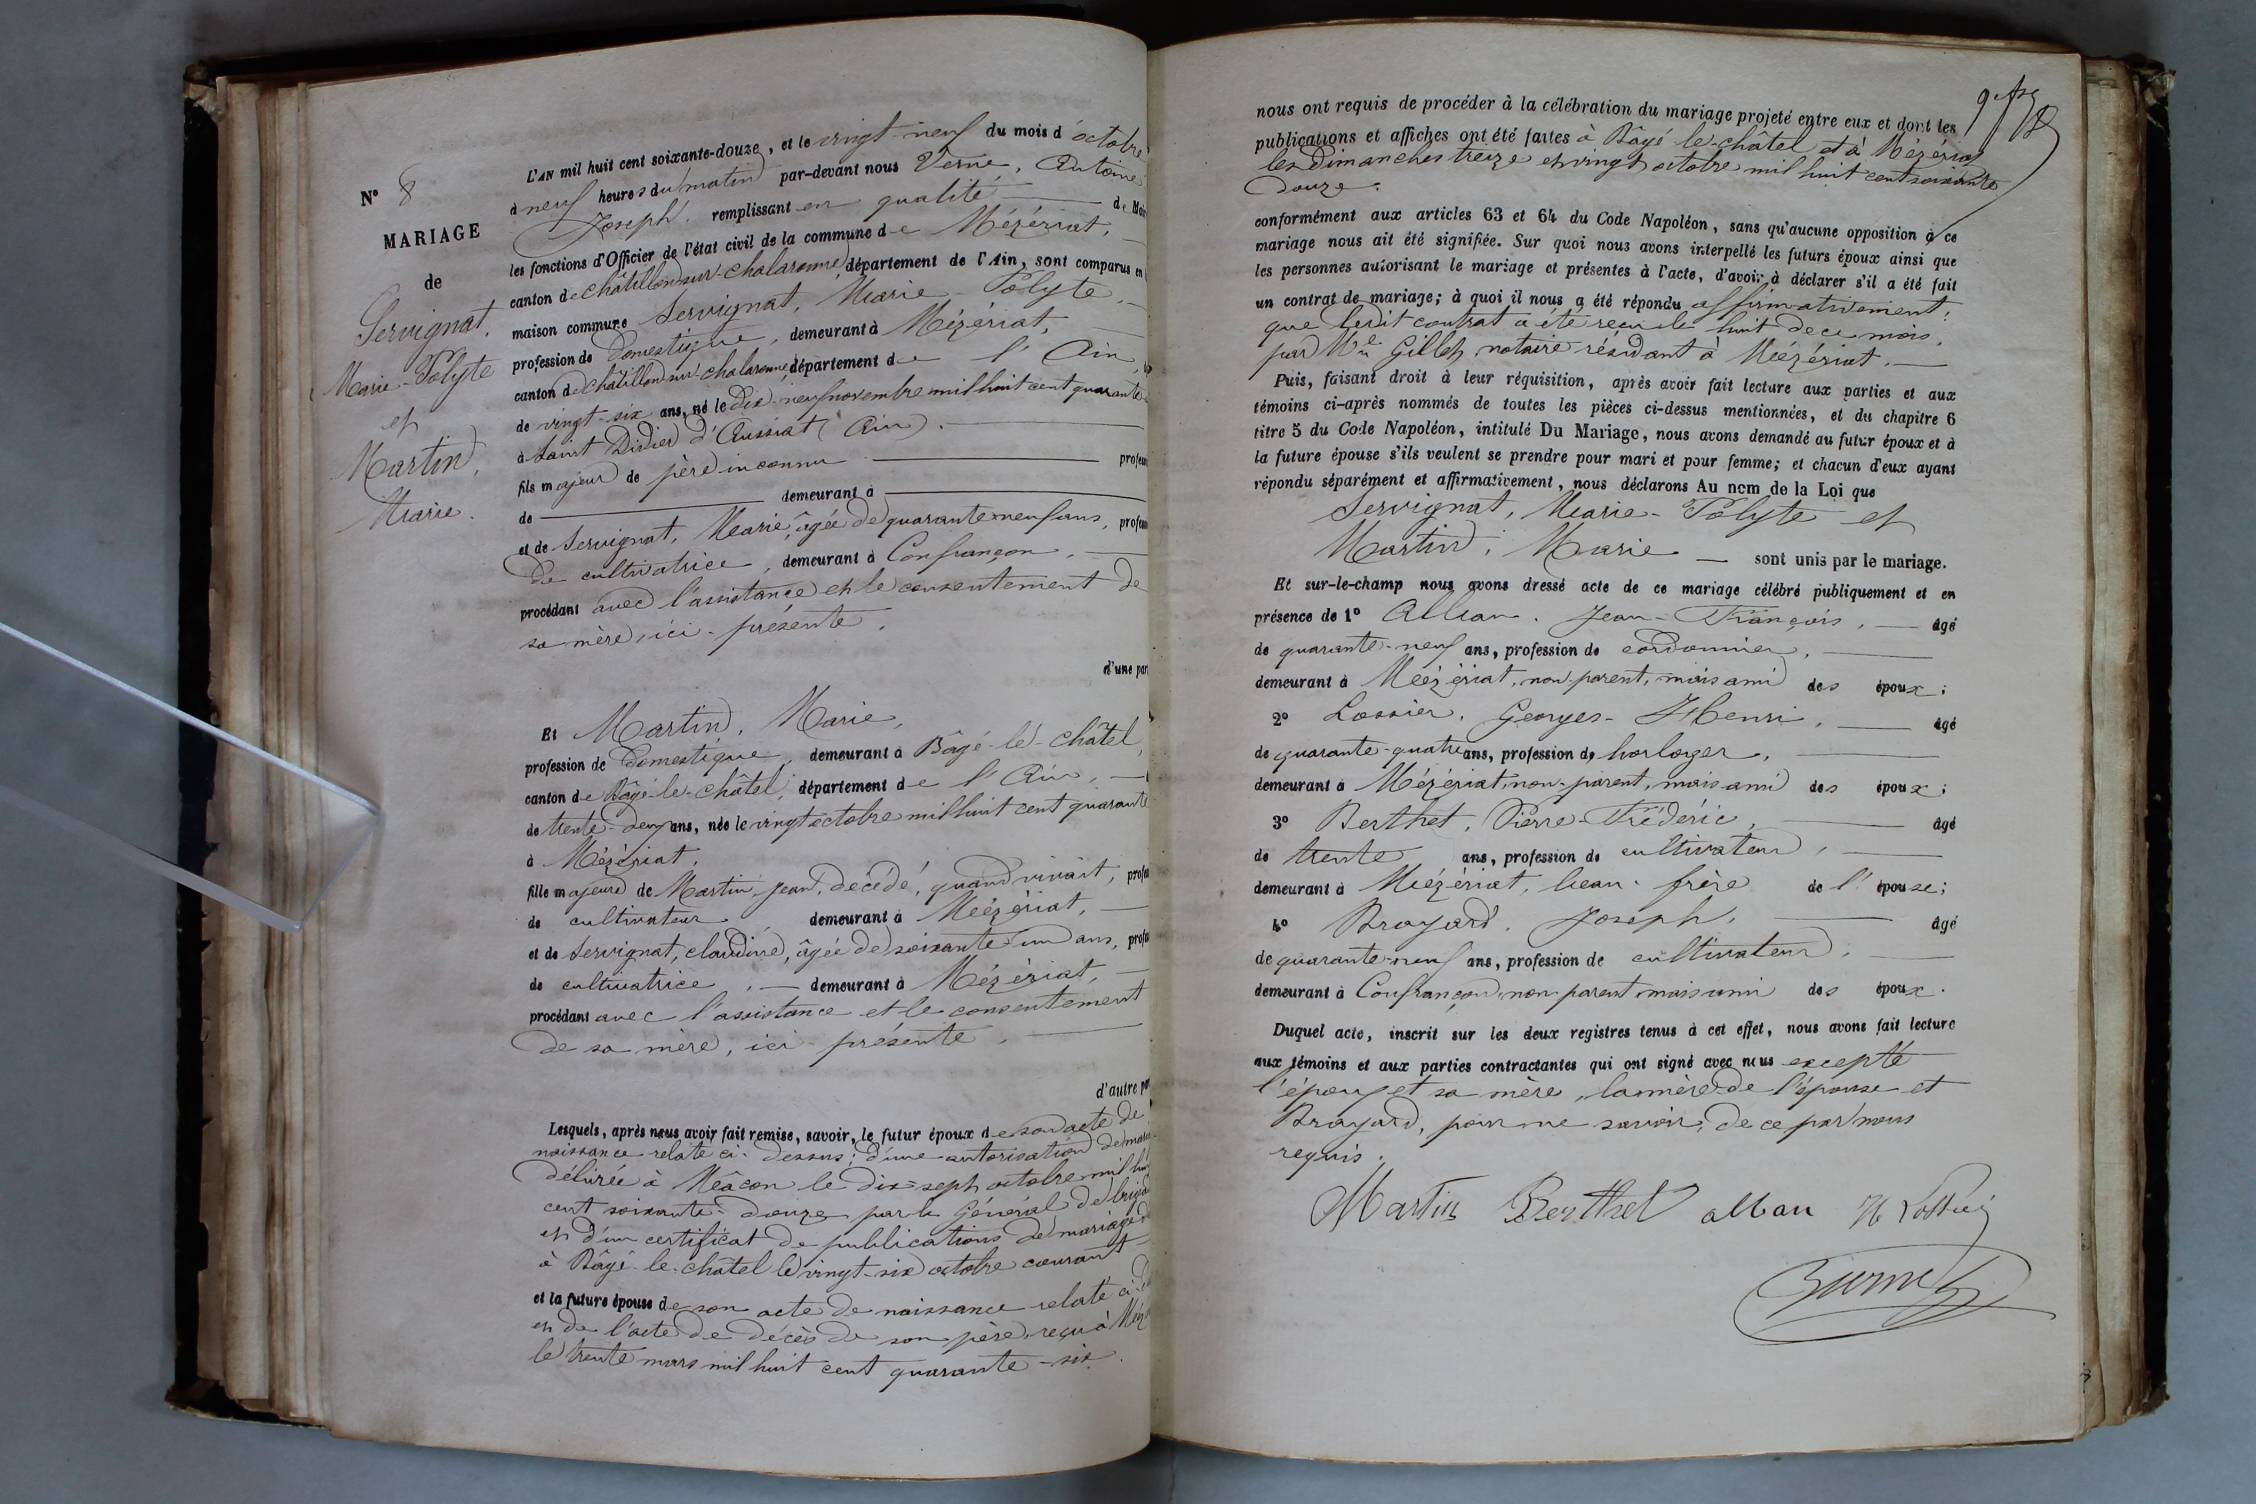 N° 8
MARIAGE
de
Servignat,
Marie-Polyte
et
Martin,
Marie.
L'AN mil huit cent soixante-douze, et le vingt-neuf du mois d'octobre
à neuf heures du matin par-devant nous Verne, Antoine
Joseph, remplissant en qualité de
les fonctions d'Officier de l'état civil de la commune de Mézériat,
canton de Châtillon-sur-Chalaronne, département de l'Ain, sont comparus en
maison commune Servignat, Marie-Polyte,
profession de Domestique, demeurant à Mézériat,
canton de Châtillon-sur-Chalaronne, département de l'Ain,
de vingt-six ans, né le dix-neuf novembre mil huit cent quarante-
à Saint Didier d'Aussiat (Ain).
fils majeur de père inconnu
de demeurant à
et de Servignat, Marie, âgée de quarante-neuf ans,
de cultivatrice, demeurant à Confrançon,
procédant avec l'assistance et le consentement de
sa mère, ici-présente,
d'une part
Et Martin, Marie,
profession de Domestique, demeurant à Bâgé-le-Châtel,
canton de Bâgé-le-Châtel, département de l'Ain,
de trente-deux ans, née le vingt octobre mil huit cent quarante
à Mézériat,
fille majeure de Martin, Jean, décédé, quand vivait,
de cultivateur demeurant à Mézériat,
et de Servignat, Claudine, âgée de soixante-un ans,
de cultivatrice, demeurant à Mézériat,
procédant avec l'assistance et le consentement
de sa mère, ici-présente,
d'autre
Lesquels, après nous avoir fait remise, savoir, le futur époux de son acte de
naissance relaté ci-dessus; d'une autorisation de
délivrée à Mâcon le dix-sept octobre mil
cent soixante-douze par le Général de
et d'un certificat de publications de mariage
à Bâgé-le-Châtel le vingt-six octobre courant
et la future épouse de son acte de naissance relaté
et de l'acte de décès de son père, reçu à
le trente mars mil huit cent quarante-six.
nous ont requis de procéder à la célébration du mariage projeté entre eux et dont les
publications et affiches ont été faites à Bâgé-le-Châtel et à Mézériat
les Dimanches treize et vingt octobre mil huit cent soixante
douze.
conformément aux articles 63 et 64 du Code Napoléon, sans qu'aucune opposition à ce
mariage nous ait été signifiée. Sur quoi nous avons interpellé les futurs époux ainsi que
les personnes autorisant le mariage et présentes à l'acte, d'avoir à déclarer s'il a été fait
un contrat de mariage; à quoi il nous a été répondu affirmativement;
que ledit contrat a été reçu le huit de ce mois,
par Gillet, notaire résidant à Mézériat.
Puis, faisant droit à leur réquisition, après avoir fait lecture aux parties et aux
témoins ci-après nommés de toutes les pièces ci-dessus mentionnées, et du chapitre 6
titre 5 du Code Napoléon, intitulé Du Mariage, nous avons demandé au futur époux et à
la future épouse s'ils veulent se prendre pour mari et pour femme; et chacun d'eux ayant
répondu séparément et affirmativement, nous déclarons Au nom de la Loi que
Servignat, Marie-Polyte et
Martin, Marie sont unis par le mariage.
Et sur-le-champ nous avons dressé acte de ce mariage célébré publiquement et en
présence de 1° Alban, Jean-François, âgé
de quarante-neuf ans, profession de cordonnier,
demeurant à Mézériat, non-parent, mais ami des époux;
2° Lossier, Georges-Henri, âgé
de quarante-quatre ans, profession de horloger,
demeurant à Mézériat, non-parent, mais ami des époux;
3° Berthet, Pierre-Frédéric, âgé
de trente ans, profession de cultivateur,
demeurant à Mézériat, beau-frère de l'épouse;
4° Broyard, Joseph, âgé
de quarante-neuf ans, profession de cultivateur,
demeurant à Confrançon, non-parent, mais ami des époux.
Duquel acte, inscrit sur les deux registres tenus à cet effet, nous avons fait lecture
aux témoins et aux parties contractantes qui ont signé avec nous excepté
l'époux et sa mère, la mère de l'épouse et
Broyard, pour ne savoir, de ce par nous
requis.
Martin Berthet alban H Lossier